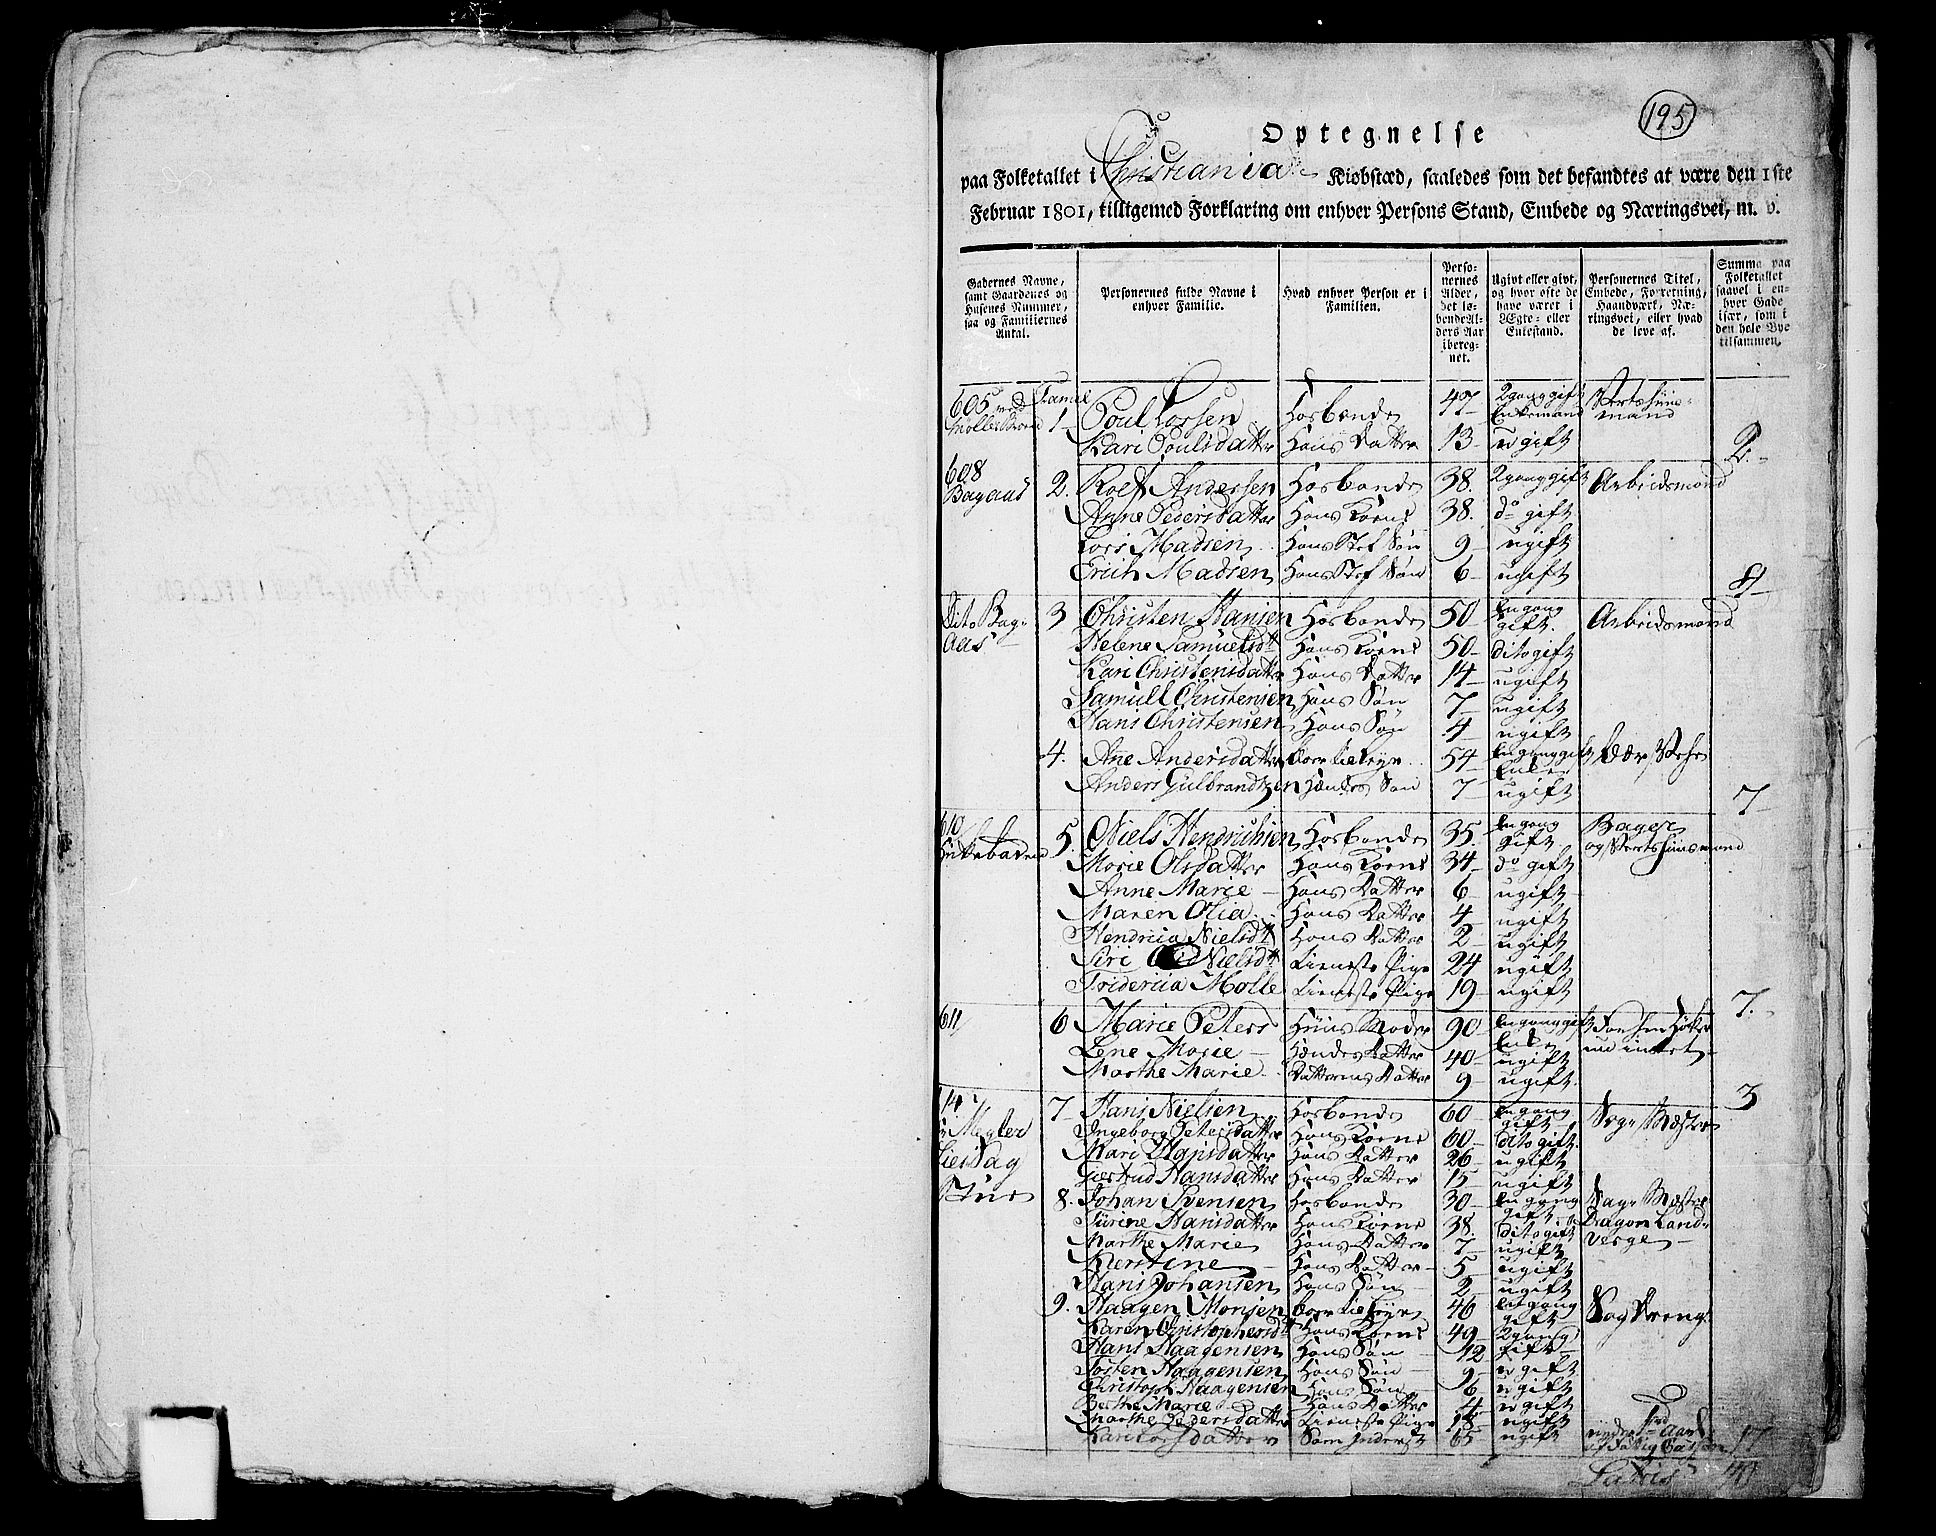 195
Optegnelse
paa Folketallet i Christiania Kiøbstæd, saaledes som det befandtes at være den 1ste
Februar 1801, tilligemed Forklaring om enhver Persons Stand, Embede og Næringsvei, m. v.
Gadernes Navne, samt Gaardenes og Husenes Nummer, saa og Familiernes Antal.
Personernes fulde Navne i enhver Familie.
Hvad enhver Person er i Familien.
Personernes Alder, det løbende Alders Aar iberegnet.
Ugivt eller givt, og hvor ofte de have været i Ægte- eller Enkestand.
Personernes Titel, Embede, Forretning, Haandværk, Næringsvei, eller hvad de leve af.
Summa paa Folketallet saavel i enhver Gade især, som i den hele Bye tilsammen.
605 ved Famil 1 Poul Larsen Hosbonde 47 2gang gift Enkemand Vertshuusmand
Kari Poulsdatter Hans Datter 13 ugift 2
608 Bagaas 2. Rolf Andersen Hosbonde 38. 2gang gift Arbeidsmand
Anne Pedersdatter Hans Kone 38. do gift
Lars Madsen Hans Stef Søn 9 ugift
Erich Madsen Hans Stef Søn 6 ugift 4
Dito Bagaas 3 Christen Hansen Hosbonde 50 En gang gift. Arbeidsmand
Helene Samuelsdtr Hans Kone 50 dito gift
Kari Christensdatter Hans Datter 14 ugift
Samuel Christensen Hans Søn 7 ugift
Hans Christensen Hans Søn 4 ugift
4. Ane Andersdatter 54 En gang gift Enke
Anders Gulbrandsen Hendes Søn 7 ugift 7
610 5. Niels Hendrichsen Hosbonde 35. En gang gift Bager og Vertshuusmand
Marie Olsdatter Hans Kone 34 do gift
Anne Marie Hans Datter 6 ugift
Maren Olia Hans Datter 4 ugift
Hendricia Nielsdtr Hans Datter 2 ugift
Siri Nielsdtr Tieneste Pige 24 ugift
Fridericia Molle Tieneste Pige 19 ugift 7.
611 6 Marie Peters Huus Moder 90 En gang gift Enke
Lene Marie Hendes Datter 40 ugift
Marthe Marie Datterens Datter 9 ugift. 3
14 7 Hans Nielsen Hosbonde 60 En gang gift Sag Mester
Ingeborg Petersdatter Hans Kone 60 dito gift
Mari Hansdatter Hans Datter 26 ugift
Giertrud Hansdatter Hans Datter 15 ugift
8. Johan Svensen Hosbonde 30 En gang gift Sag Mester Dragon Landverge
Sirine Hansdatter Hans Kone 38. dito gift
Marthe Marie Hans Datter 7 ugift
Kierstine Hans Datter 5 ugift
Hans Johansen Hans Søn 2 ugift
9. Haagen Monsen 46 En gang gift Sag Dreng
Karen Christophersdtr Hans Kone 49 2gang gift
Hans Haagensen Hans Søn 12 ugift
Josten Haagensen Hans Søn 9 ugift
Christoph Haagensen Hans Søn 6 ugift
Berthe Marie Hans Datter 4 ugift
Marthe Pedersdatter Tieneste Pige 18 ugift
Kari Larsdatter 65 ugift 17
Latus 40